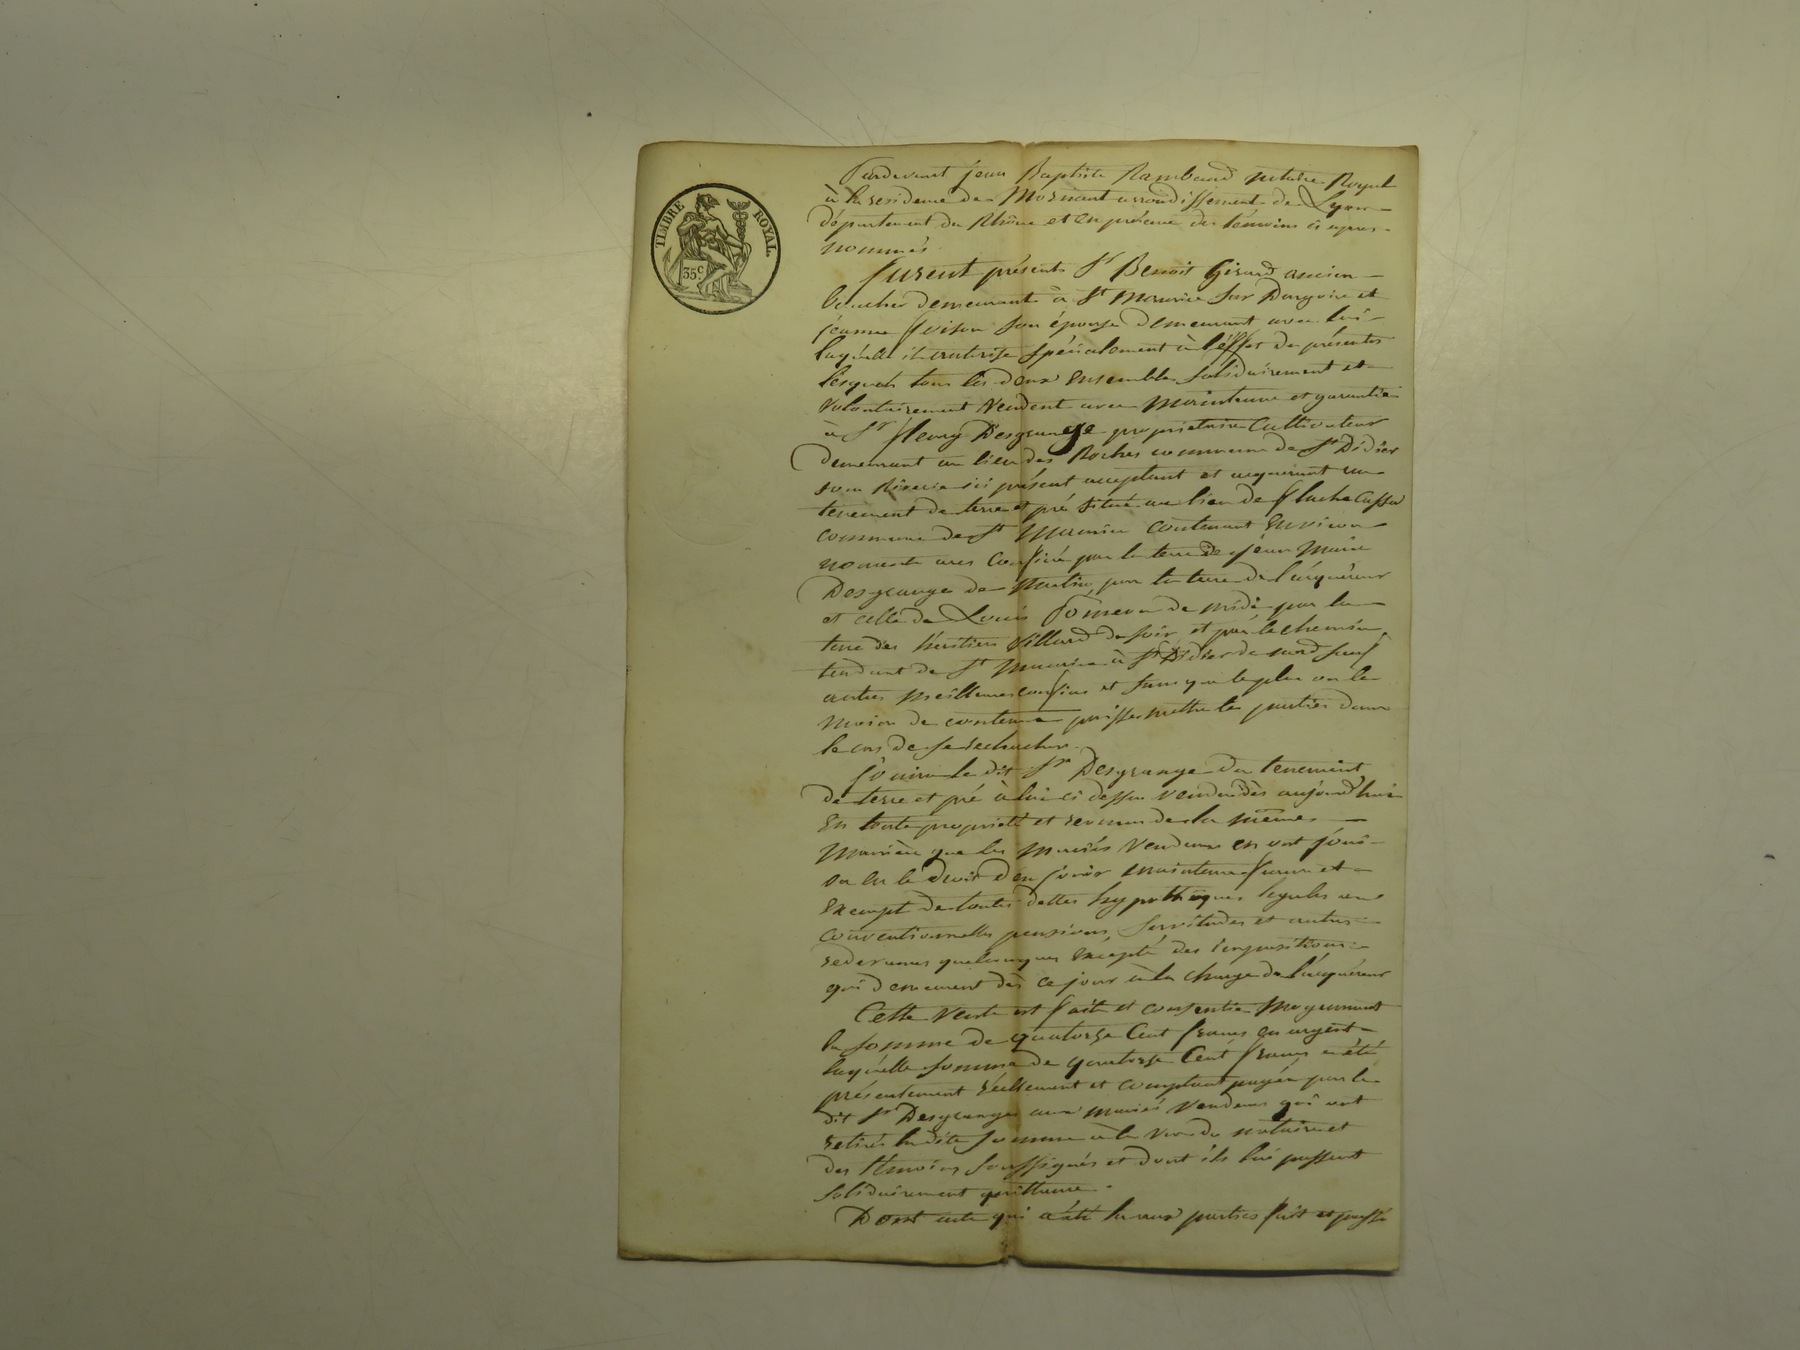 TIMBRE ROYAL
35c
Pardevant jean Baptiste Rambaud notaire Royal
à la residence de Mornant arrondissement de Lyon
département du Rhône et en présence des témoins ci apres
nommés
furent présents Sr Benoit Girard ancien
boucher demeurant à St Maurice sur Dargoire et
jeanne son épouse demeurant avec lui
laquelle il autorise spécialement à l'effet des présentes
lesquels tous les deux ensemble solidairement et
volontairement vendent avec maintenue et garantie
à Sr fleury Desgrange propriétaire cultivateur
demeurant au lieu des Roches commune de St Didier
sous Riverie ici présent acceptant et acquerant un
tenement de terre et pré situé au lieu de
commune de St Maurice contenant environ
nonante ares confiné par la terre de jean Marie
Desgrange de matin, par la terre de l'acquéreur
et celle de Louis de midi par la
terre des héritiers Villard de soir et par le chemin
tendant de St Maurice à St Didier de nord sauf
autres meilleures confins et sans que le plus ou le
moins de contenue puisse mettre les parties dans
le cas de se rechercher.
Jouira le dit Sr Desgrange du tenement
de terre et pré à lui ci dessus vendu dès aujourd'hui
en toute propriété et revenus de la même
manière que les mariés vendeurs en ont joui
ou eu le droit d'en jouir maintenu franc et
exempt de toutes dettes hypothèques legales ou
conventionnelles pensions, servitudes et autres
redevances quelconques excepté des impositions
qui demeurent dès ce jour à la charge de l'acquéreur
Cette vente est faite et consentie moyennant
la somme de quatorze Cent francs en argent
laquelle somme de quatorze Cent francs a été
présentement réellement et comptant payée par le
dit Sr Desgrange aux mariés vendeurs qui ont
retiré la dite somme à la vue du notaire et
des témoins soussignés et dont ils lui passent
solidairement quittance.
Dont acte qui a été lu aux parties fait et passé